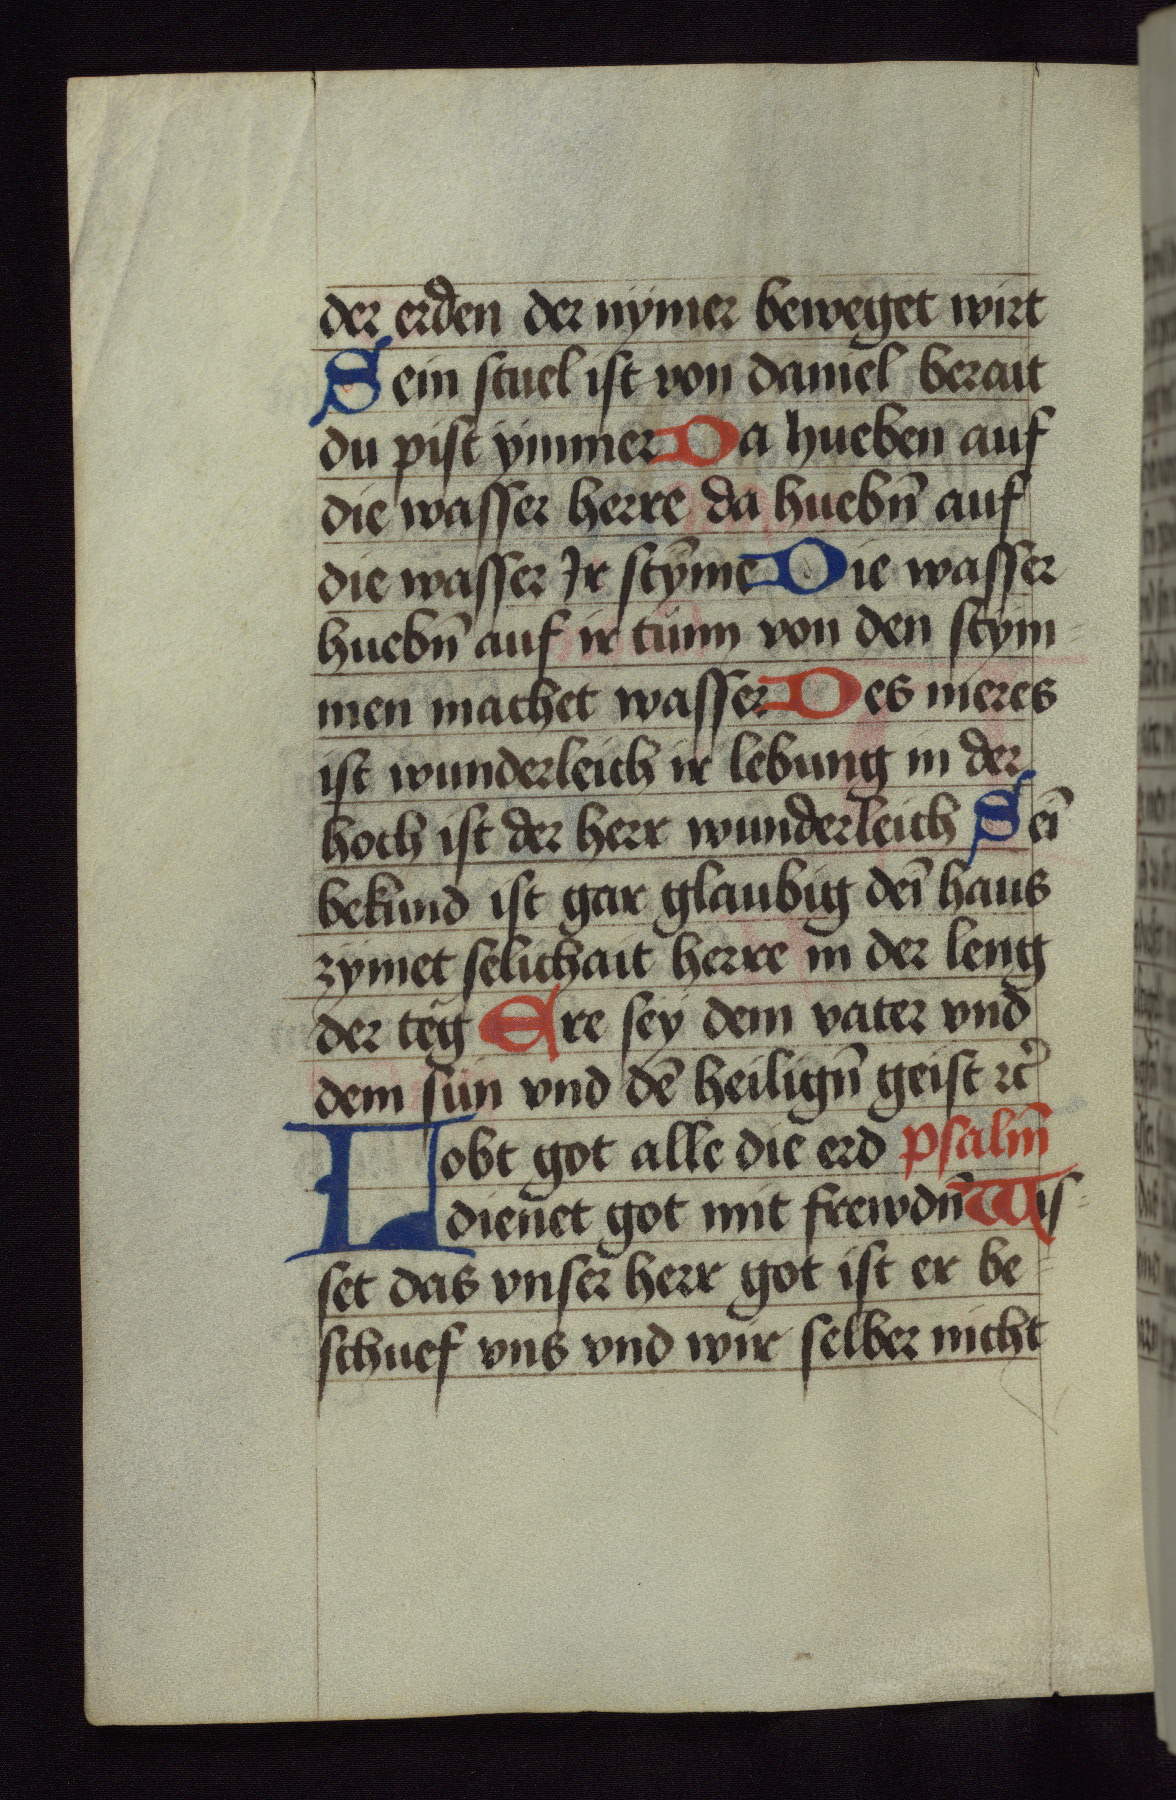 der erden der nymer beweget wirt
Sein stuel ist von daniel berait
du pist ymmer Da hueben auf
die wasser herre da huebn̄ auf
die wasser Ir stȳme Die wasser
huebn̄ auf ir tünn von den stym-
men machet wasser Des meres
ist wunderleich ir lebung in der
hoch ist der herr wunderleich Sei̅
bekünd ist gar glaubig dei̅ haus
zymet selichait herre in der leng
der teg Ere sey dem vater vnd
dem sün vnd de̅ heilign̄ geist ꝛc̄
Lobt got alle die erd psalm̄
dienet got mit frewdn̄ Wis-
set das vnser herr got ist er be-
schuef vns vnd wir selber nicht